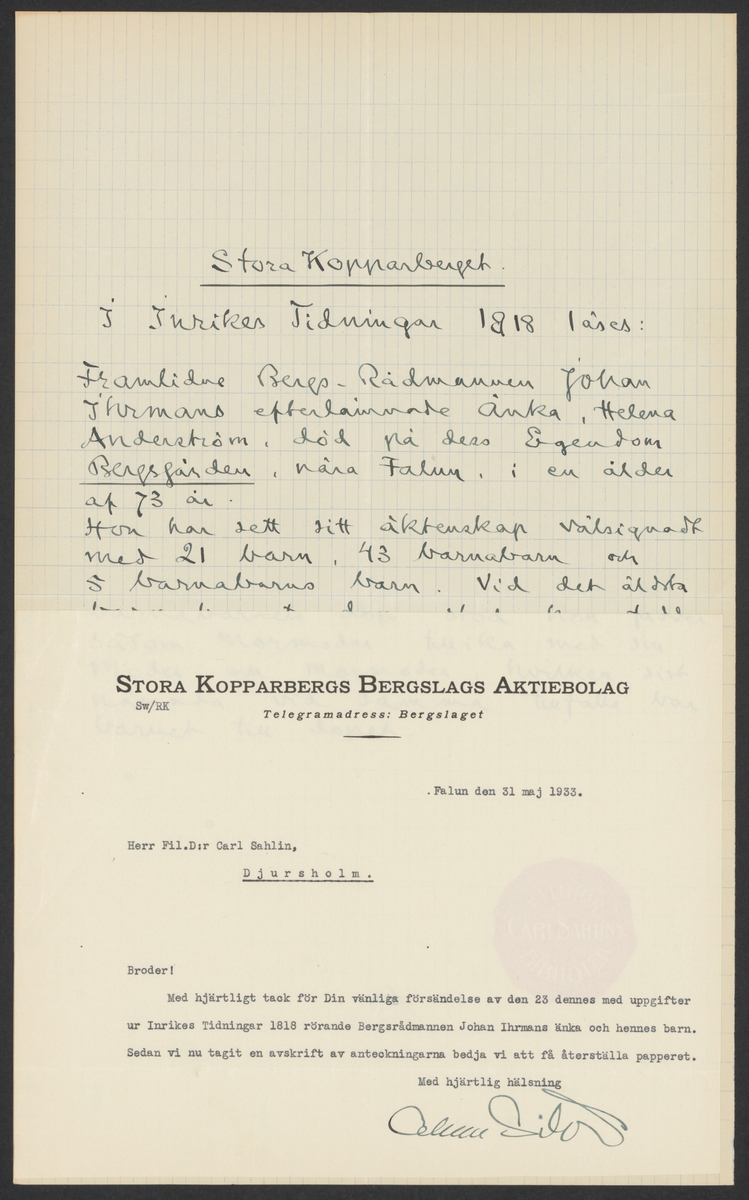 Stora Kopparberget.
I Inrikes Tidningar 1818 läses:
Framlidne Bergs-Rådmannen Johan
Ihrmans efterlämnade Änka, Helena
Anderström, död på dess Egendom
Bergsgården, nära Falun, i en ålder
af 73 år.
Hon har sett sitt äktenskap välsignadt
med 21 barn, 43 barnabarn och
5 barnabarns barn. Vid det äldsta
STORA KOPPARBERGS BERGSLAGS AKTIEBOLAG
Sw/RK
Telegramadress: Bergslaget
Falun den 31 maj 1933.
Herr Fil.D:r Carl Sahlin,
Djursholm.
CARL SAHLIN
Broder!
Med hjärtligt tack för Din vänliga försändelse av den 23 dennes med uppgifter
ur Inrikes Tidningar 1818 rörande Bergsrådmannen Johan Ihrmans änka och hennes barn.
Sedan vi nu tagit en avskrift av anteckningarna bedja vi att få återställa papperet.
Med hjärtlig hälsning